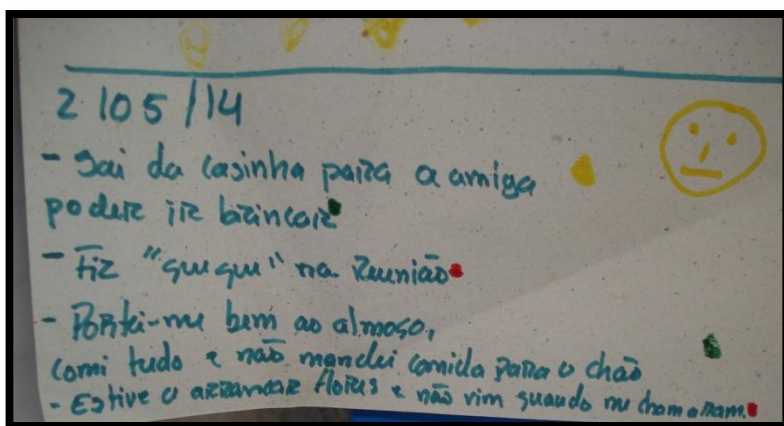 2/05/14
- Sai da casinha para a amiga
poder ir brincar
- Fiz "qui qui" na Reunião
- Portei-me bem ao almoço,
comi tudo e não mandei comida para o chão
- Estive a arrancar flores e não vim quando me chamaram.